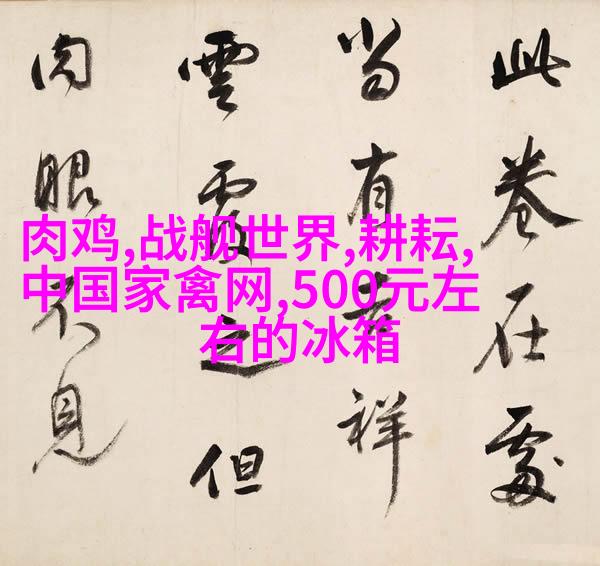 此卷在處
當有吉祥
雲覆之但
肉眼不見
肉鸡,战舰世界,耕耘,
中国家禽网,500元左
右的冰箱